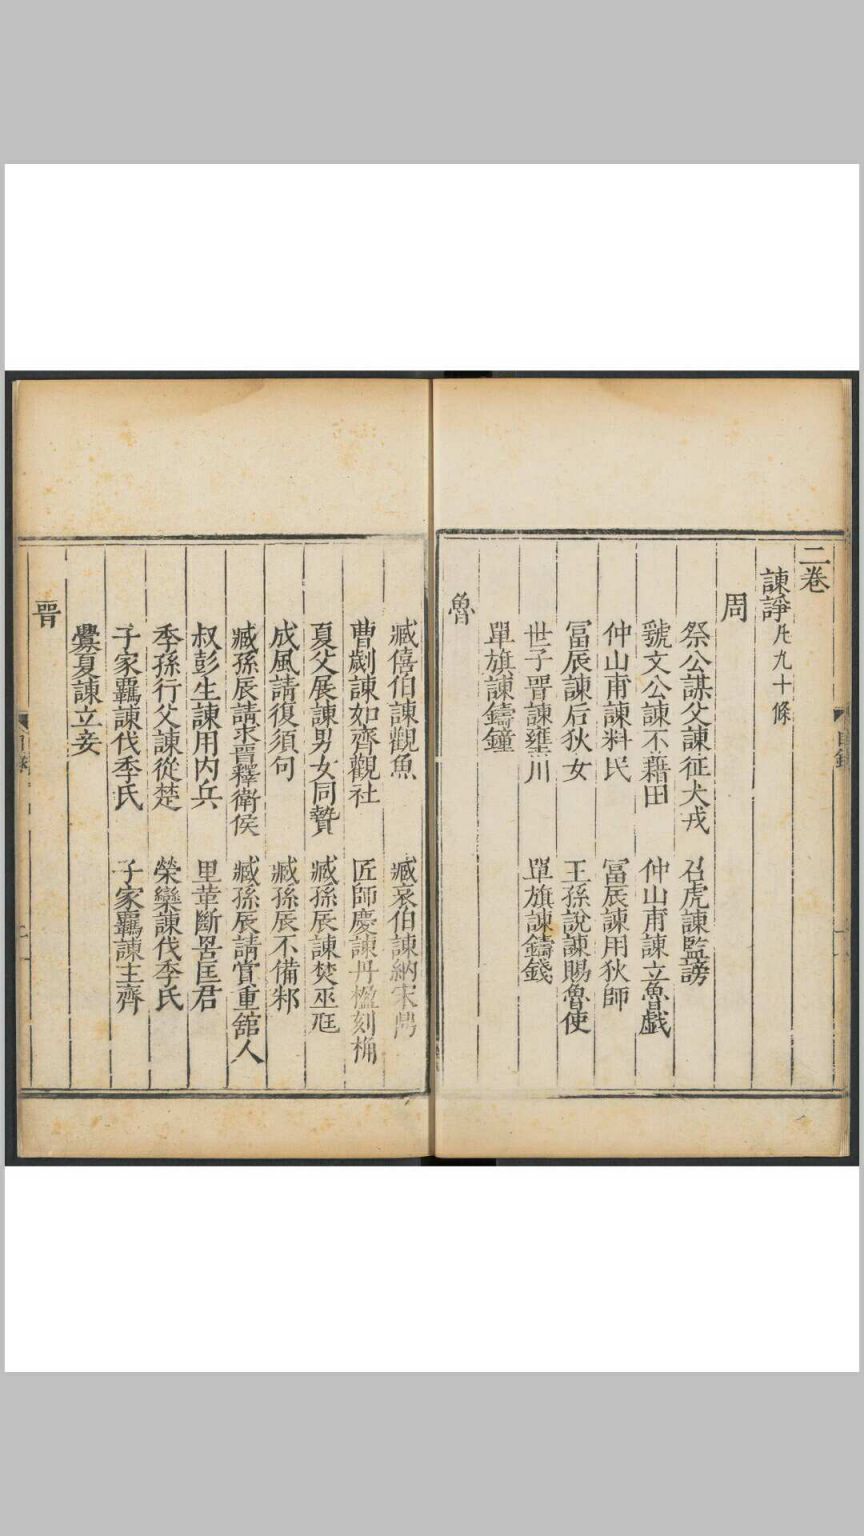 二卷
諫諍凡九十條
周
祭公謀父諫征犬戎　召虎諫監謗
虢文公諫不藉田　仲山甫諫立魯戲
仲山甫諫料民　富辰諫用狄師
富辰諫后狄女　王孫說諫賜魯使
世子晉諫壅川　單旗諫鑄錢
單旗諫鑄鐘
魯
臧僖伯諫觀魚　臧哀伯諫納宋鼎
曹劌諫如齊觀社　匠師慶諫丹楹刻桷
夏父展諫男女同贄　臧孫辰諫焚巫尫
成風請復須句　臧孫辰不備邾
臧孫辰請求晉釋衛侯　臧孫辰請賞重舘人
叔彭生諫用内兵　里革斷罟匡君
季孫行父諫從楚　榮欒諫伐季氏
子家覊諫伐季氏　子家覊諫主齊
釁夏諫立妾
晉
目錄